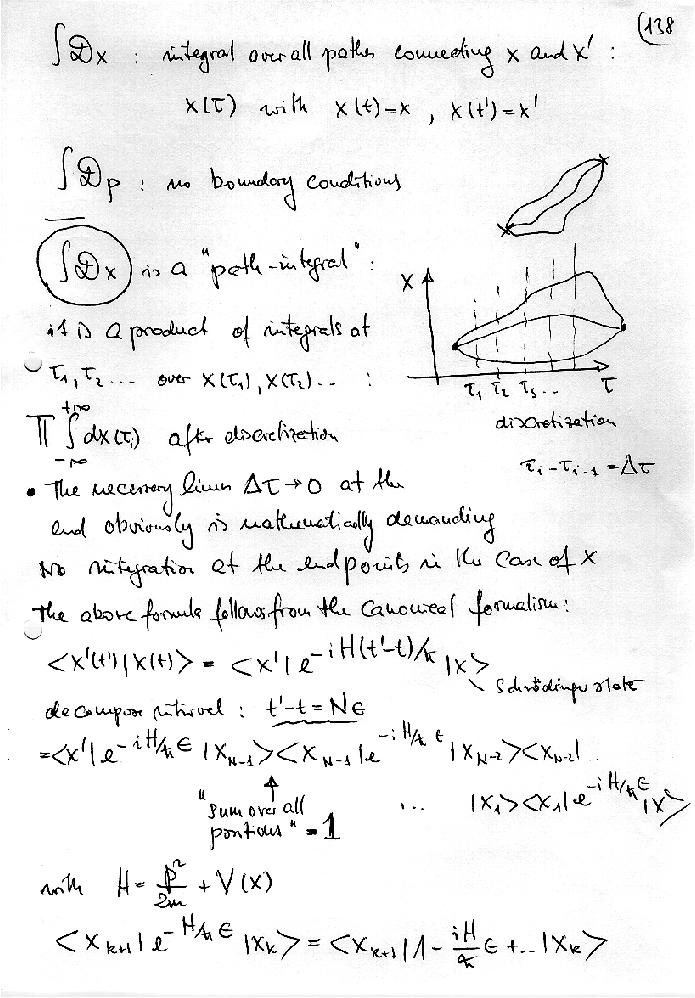 (138
∫𝒟x : integral over all paths connecting x and x' :
x(τ) with x(t)=x , x(t')=x'
∫𝒟p : no boundary conditions
∫𝒟x is a "path-integral" :
it is a product of integrals at
τ₁, τ₂ ... over x(τ₁), x(τ₂)... :
x
τ₁ τ₂ τ₃ ... τ
discretization
τᵢ - τᵢ₋₁ = Δτ
∏ ∫_{-∞}^{+∞} dx(τᵢ) after discretization
• The necessary limes Δτ → 0 at the
end obviously is mathematically demanding
No integration at the endpoints in the case of x
The above formula follows from the canonical formalism :
<x'(t')|x(t)> = <x'| e^{-iH(t'-t)/ħ} |x>
Schrödinger state
decompose interval : t'-t = Nϵ
= <x'| e^{-iH/ħ ϵ} |x_{N-1}><x_{N-1}| e^{-iH/ħ ϵ} |x_{N-2}><x_{N-2}|
... |x₁><x₁| e^{-iH/ħ ϵ} |x>
"sum over all
positions" = 1
with H = p²/2m + V(x)
<x_{k+1}| e^{-H/ħ ϵ} |x_k> = <x_{k+1}| 1 - iH/ħ ϵ + ... |x_k>